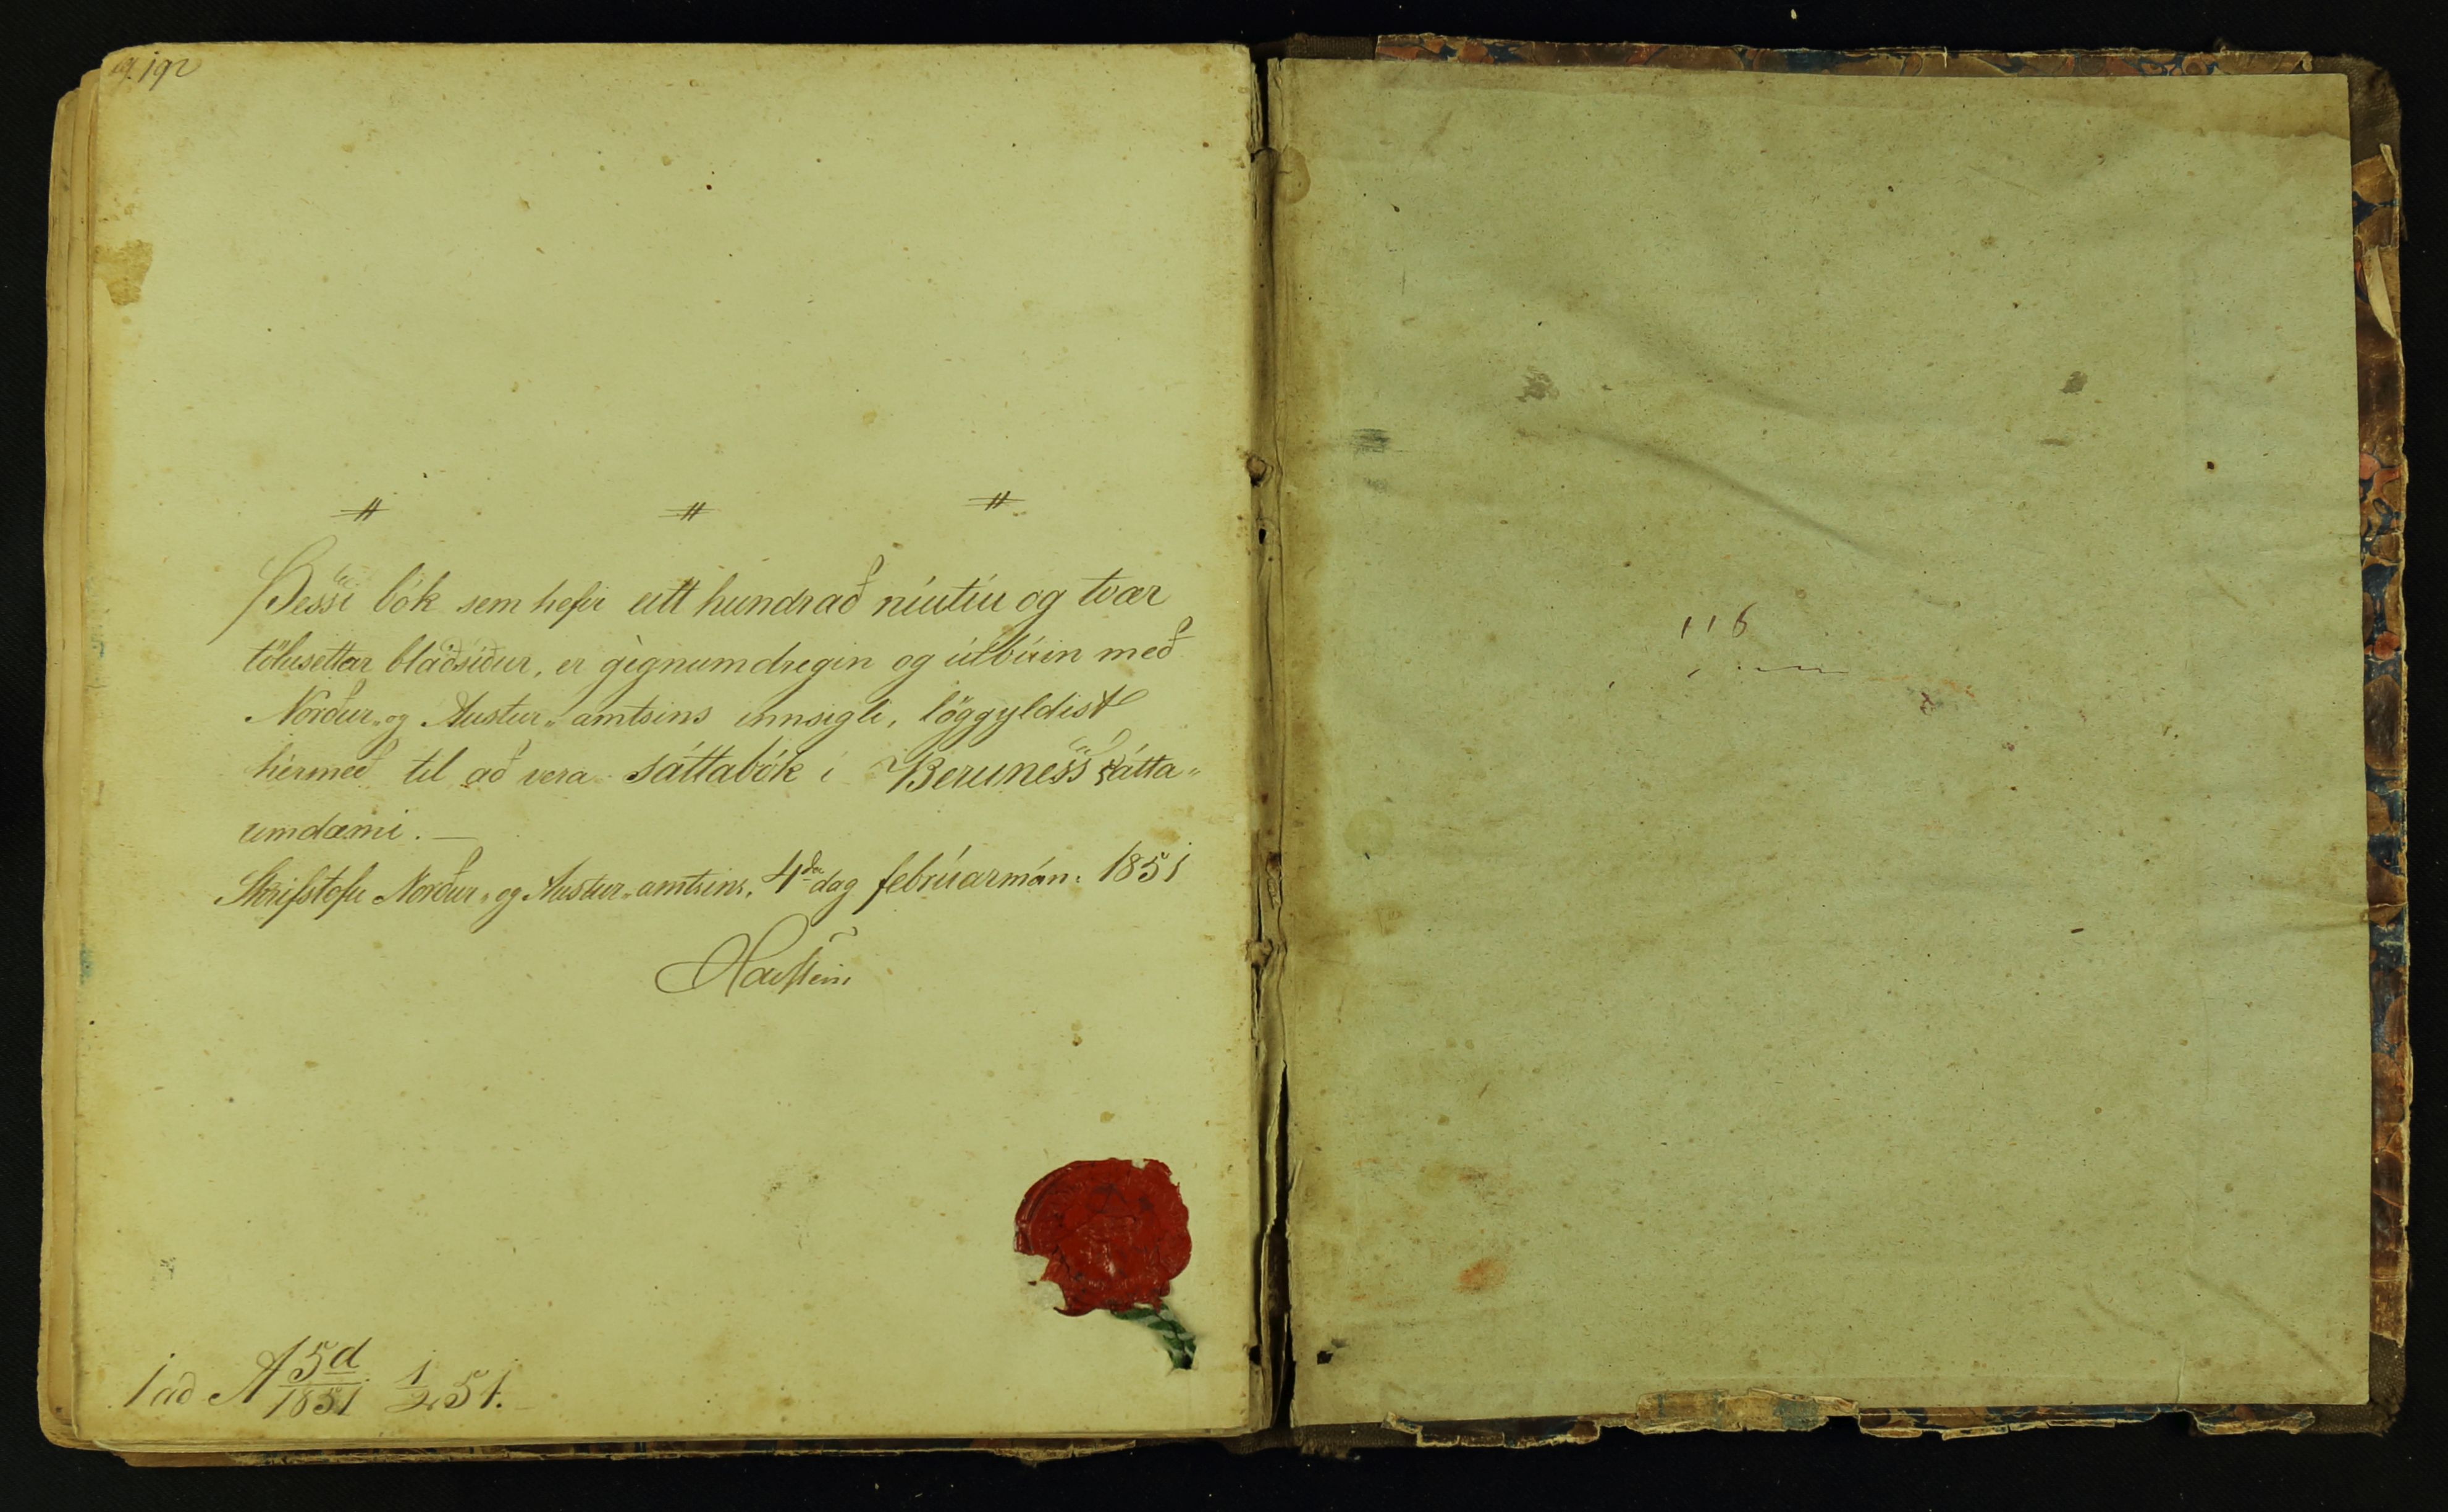 192
Þessi bók sem hefir eitt hundrað níutíu og tvær
tölusettar blaðsíður, er gègnumdregin og útbúin með
Norður„ og Austur„ amtsins innsigli, löggyldist
hérmeð til að vera sáttabók í Beruness sátta„
umdæmi. —
Skrifstofu Norður„ og Austur„ amtsins, 4da dag febrúarmán: 1851
Havstein
1 að A 5d/1851 1/2 51.
116